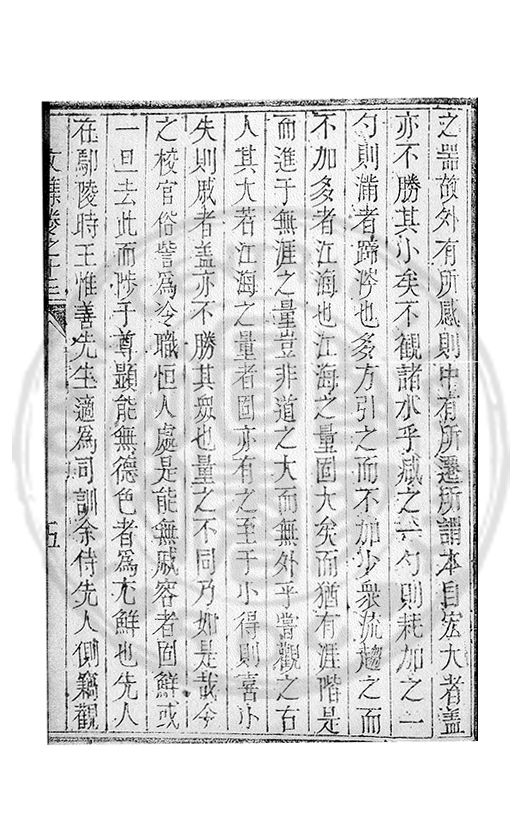 之器故外有所感則中有所遷所謂本自宏大者葢
亦不勝其小矣不觀諸水乎减之一勺則耗加之一
勺則滿者蹄涔也多方引之而不加少衆流趨之而
不加多者江海也江海之量固大矣而猶有涯階是
而進于無涯之量豈非道之大而無外乎嘗觀之古
人其大若江海之量者固亦有之至于小得則喜小
失則戚者葢亦不勝其衆也量之不同乃如是哉今
之校官俗訾為冷職恒人處是能無戚容者固鮮或
一旦去此而陟乎尊顯能無德色者為尤鮮也先人
在鄢陵時王惟善先生適為司訓余侍先人側竊觀
文集卷之十三
五